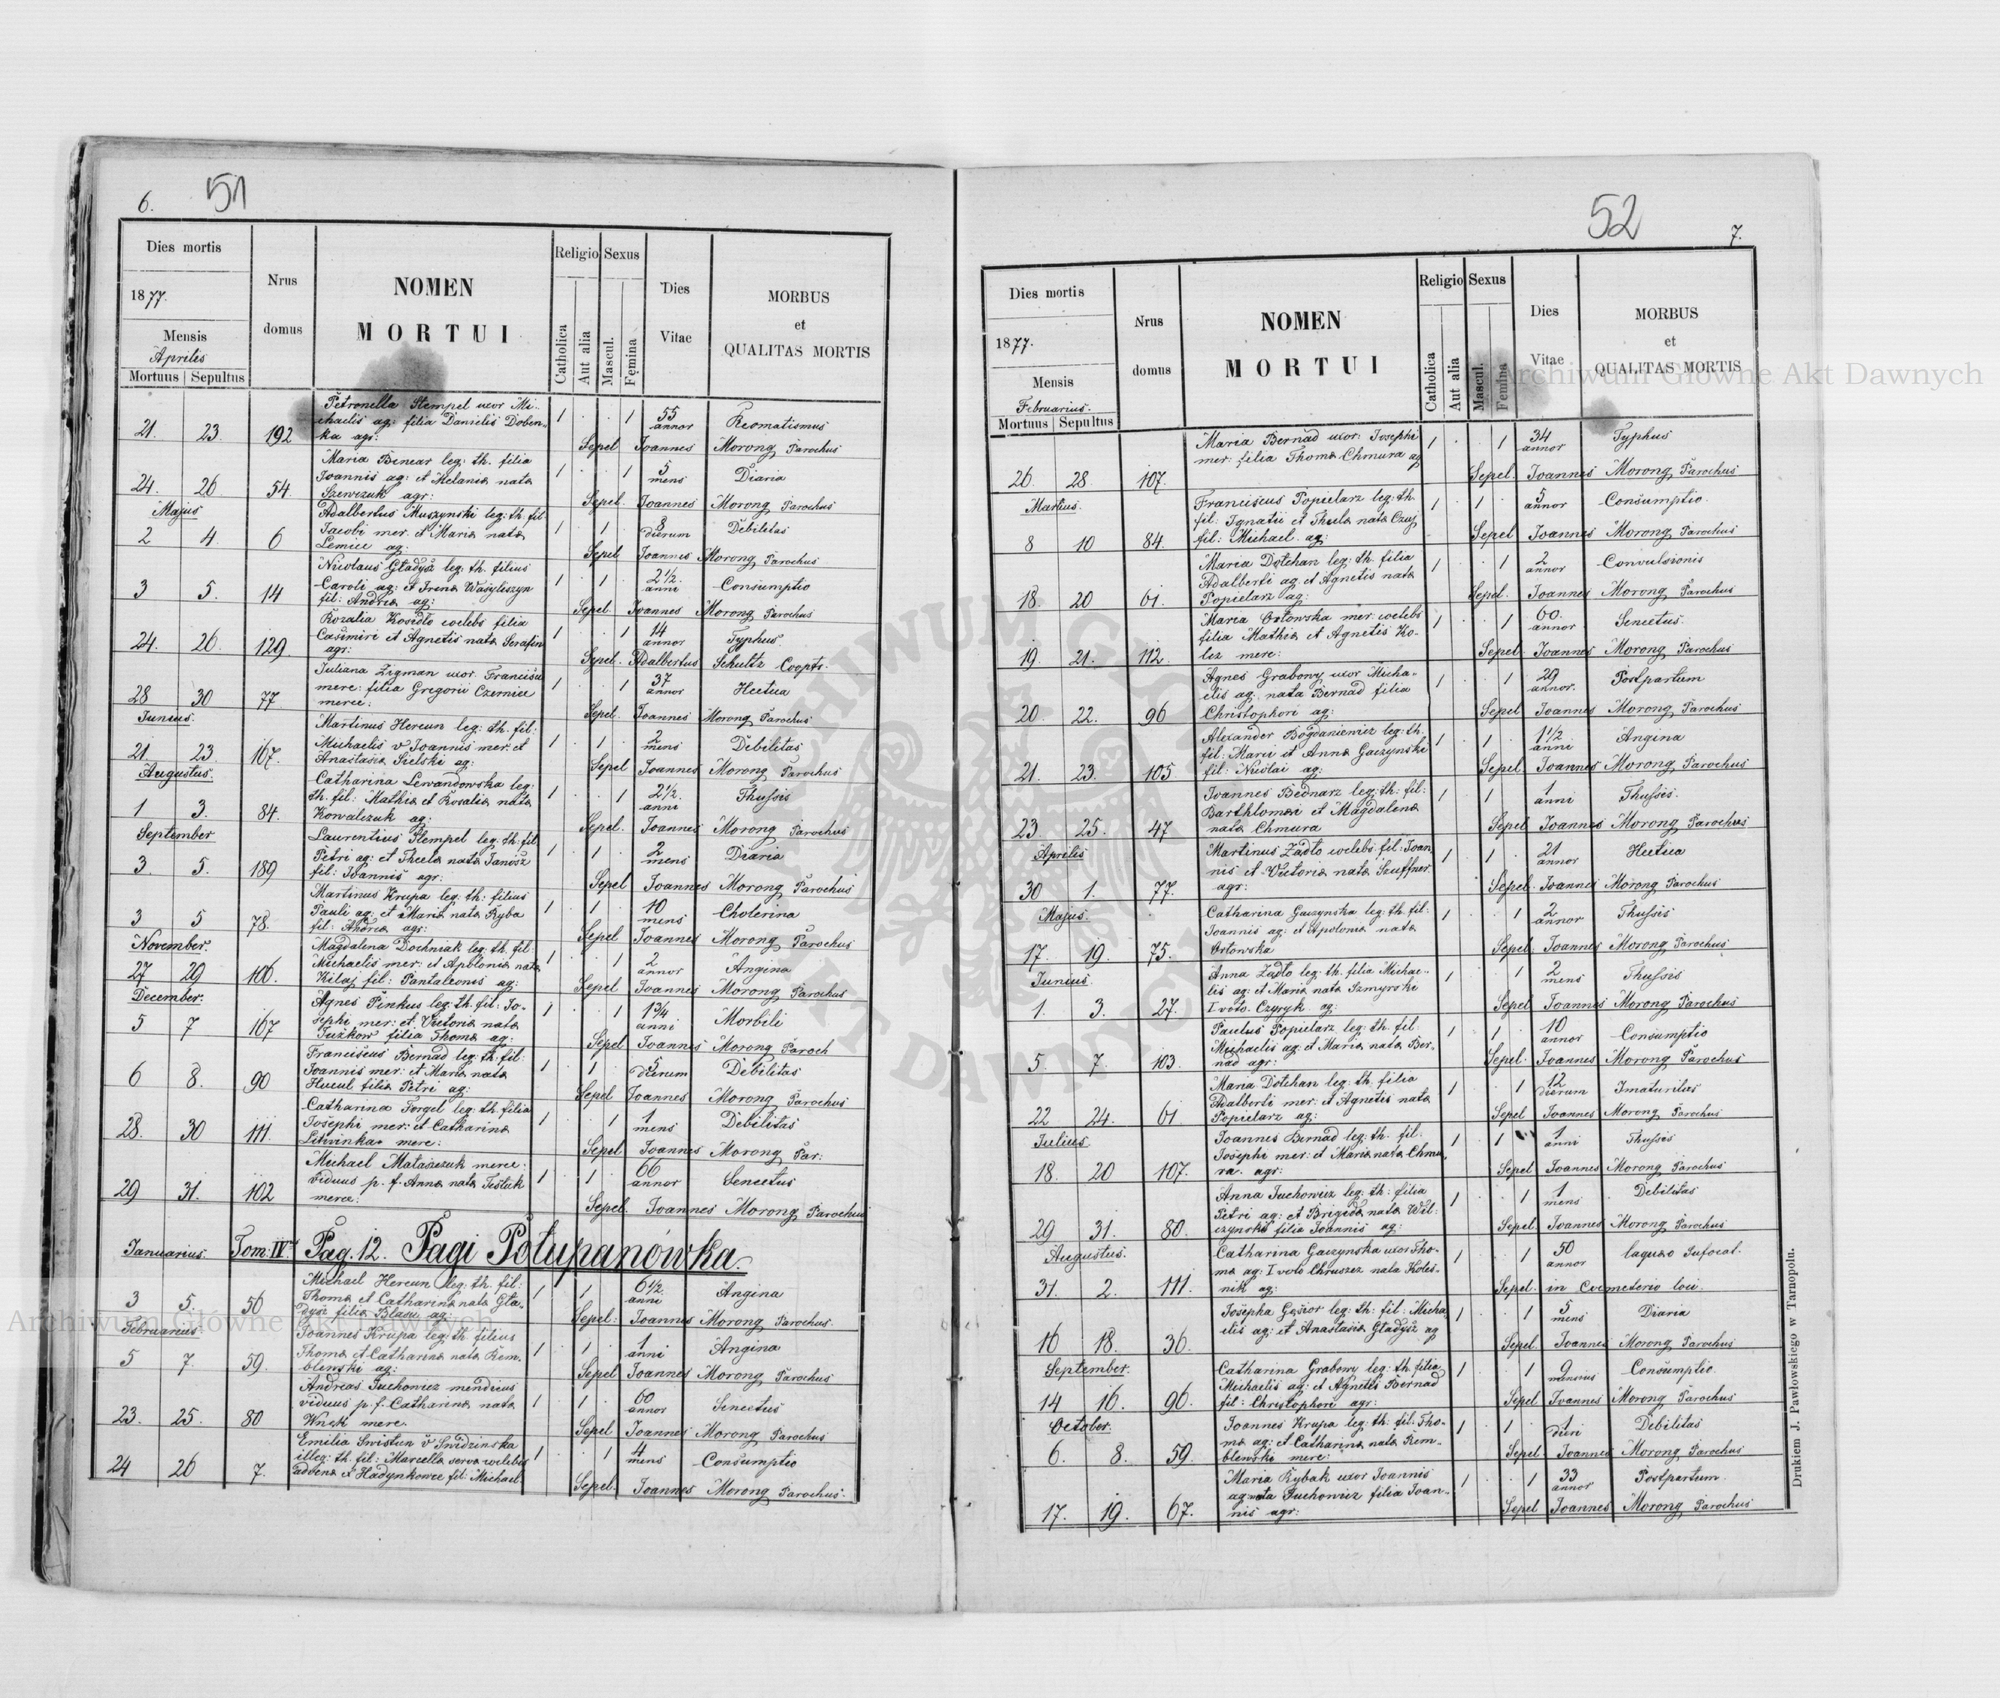 6. 51
Dies mortis
1877.
Mensis
Aprilis
Mortuus Sepultus
Nrus domus
NOMEN
MORTUI
Religio Sexus
Catholica Aut alia Mascul. Femina
Dies Vitae
MORBUS
et
QUALITAS MORTIS
Petronella Stempel uxor Mi-
chaelis ag: filia Danielis Doben-
ka agr:
21. 23. 192 1 . . 1 55 annor Reomatismus
Sepel Joannes Morong Parochus
Maria Benear leg: th. filia
Joannis ag: et Melania nata
Szewczuk agr:
24. 26 54. 1 . . 1 5 mens Diaria
Sepel Joannes Morong Parochus
Majus
Adalbertus Muszynski leg: th. fil
Jacobi mer. et Maria nata
Lemice ag:
2 4 6 1 . 1 . 8 dierum Debilitas
Sepel Joannes Morong Parochus
Nicolaus Gładyś leg: th: filius
Caroli ag: et Irena Wasyliszyn
fil: Andrea ag:
3 5. 14 1 . 1 . 2½ anni Consumptio
Sepel Joannes Morong Parochus
Rozalia Kosidło coelebs filia
Casimiri et Agnetis nata Serafin
agr:
24. 26. 129. 1 . . 1 14 annor Typhus
Sepel. Adalbertus Schultz Coopts.
Juliana Zigman uxor. Francisci
merc: filia Gregorii Czernice
merce:
28 30 77 1 . . 1 37 annor Hectica
Sepel. Joannes Morong Parochus
Junius.
Martinus Hereun leg: th. fil:
Michaelis v Joannis mer: et
Anastasia Sielski ag:
21. 23 167. 1 . 1 . 2 mens Debilitas
Sepel Joannes Morong Parochus
Augustus.
Catharina Lewandowska leg:
th. fil: Mathia et Rosalia nata
Kowalczuk ag:
1 3. 84. 1 . . 1 2½. anni Thussis
Sepel. Joannes Morong Parochus
September
Laurentius Stempel leg: th. fil
Petri ag: et Thecla nata Janosz
fil: Joannis agr:
3. 5. 189 1 . 1 . 2 mens Diaria
Sepel Joannes Morong Parochus
Martinus Krupa leg: th: filius
Pauli ag: et Maria nata Ryba
fil: Andrea agr:
3 5 78. 1 . 1 . 10 mens Cholerina
Sepel Joannes Morong Parochus
November.
Magdalena Dochniak leg: th. fil:
Michaelis mer: et Apolonia nata
Kilaj fil: Pantaleonis ag:
27 29 106. 1 . . 1 2 annor Angina
Sepel Joannes Morong Parochus
December.
Agnes Pinkus leg: th. fil: Jo-
sephi mer: et. Victoria nata
Juzkow filia Thoma ag:
5 7 167 1 . . 1 1¾ anni Morbili
Sepel Joannes Morong Paroch
Franciscus Bernad leg: th: fil:
Joannis mer: et Maria nata
Hucul filia Petri ag:
6 8. 90 1 . 1 . 5 dierum Debilitas
Sepel Joannes Morong Parochus
Catharina Forgel leg: th. filia
Josephi mer: et Catharina
Litwinka merc:
28. 30 111. 1 . . 1 1 mens Debilitas
Sepel Joannes Morong Par:
Michael Matasczuk merce:
viduus p. f. Anna nata Testuk
merce:
29 31. 102 1 . 1 . 66 annor Senectus
Sepel. Joannes Morong Parochus
Januarius. Tom: IVti Pag. 12. Pagi Potupanówka.
Michael Hereun leg: th. fil:
Thoma et Catharina nata Gła-
dysz filia Blasii ag:
3 5. 56 1 . 1 . 6½ anni Angina
Sepel: Joannes Morong Parochus.
Februarius.
Joannes Krupa leg: th filius
Thoma et Catharina nata Rem-
blewski ag:
5 7. 59. 1 . 1 . 1 anni Angina
Sepel Joannes Morong Parochus
Andreas Juchowicz mendicus
viduus p. f. Catharina nata
merc.
23. 25. 80 1 . 1 . 60 annor Senectus
Sepel Joannes Morong Parochus
Emilia Swistun v Swidzinska
illeg: th. fil: Marcella serva coelebs
advena et Hadynkowce fil: Michael.
24 26 7. 1 . . 1 4 mens Consumptio
Sepel. Joannes Morong Parochus.
52 7.
Dies mortis
1877.
Mensis
Februarius.
Mortuus Sepultus
Nrus domus
NOMEN
MORTUI
Religio Sexus
Catholica Aut alia Mascul. Femina
Dies Vitae
MORBUS
et
QUALITAS MORTIS
Maria Bernad uxor: Josephi
mer: filia Thoma Chmura ag
26. 28 107. 1 . . 1 34 annor Typhus
Sepel. Joannes Morong Parochus
Martius.
Franciscus Popielarz leg: th.
fil: Ignatii et Thecla nata Czuj
fil: Michael. ag:
8 10 84. 1 . 1 . 5 annor Consumptio.
Sepel Joannes Morong Parochus
Maria Dotchan leg: th. filia
Adalberti ag: et Agnetis nata
Popielarz ag:
18. 20 61. 1 . . 1 2 annor Convulsionis
Sepel. Joannes Morong Parochus
Maria Orłowska mer: coelebs
filia Mathia et Agnetis Ko-
lez merc:
19. 21. 112. 1 . . 1 60. annor Senectus.
Sepel Joannes Morong Parochus
Agnes Grabowy uxor Micha-
elis ag: nata Bernad filia
Christophori ag:
20 22. 96 1 . . 1 29 annor. Postpartum
Sepel Joannes Morong Parochus
Alexander Bogdaniewicz leg: th.
fil: Marci et Anna Gaczynski
fil: Nicolai ag:
21. 23. 105 1 . 1 . 1½ anni Angina
Sepel. Joannes Morong Parochus
Joannes Bednarz leg: th: fil:
Barthlomai et Magdalena
nata Chmura
23. 25. 47 1 . 1 . 1 anni Thussis.
Sepel Joannes Morong Parochus
Aprilis
Martinus Zadło coelebs. fil: Joan
nis et Victoria nata Szuffner
agr:
30 1. 77. 1 . 1 . 21 annor Hectica
Sepel. Joannes Morong Parochus
Majus.
Catharina Gaczynska leg: th. fil:
Joannis ag: et Apolonia nata
Orłowska
17. 19. 75. 1 . . 1 2 annor Thussis
Sepel Joannes Morong Parochus
Junius.
Anna Zadło leg: th. filia Michae-
lis ag: et Maria nata Szmyrski
I voto. Czyryk ag:
1. 3. 27. 1 . . 1 2 mens Thussis
Sepel Joannes Morong Parochus
Paulus Popielarz leg: th. fil:
Michaelis ag: et Maria nata Ber-
nad agr:
5 7. 103. 1 . 1 . 10 annor Consumptio
Sepel. Joannes Morong Parochus
Maria Dotchan leg: th. filia
Adalberti mer: et Agnetis nata
Popielarz ag:
22 24. 61 1 . . 1 12 dierum Imaturitas
Sepel Joannes Morong Parochus
Julius.
Joannes Bernad leg: th. fil:
Josephi mer: et Maria nata Chmu
ra. agr:
18. 20 107. 1 . 1 . 1 anni Thussis
Sepel Joannes Morong Parochus
Anna Juchowicz leg: th: filia
Petri ag: et Brigida nata Wil-
czynski filia Joannis ag:
29 31. 80. 1 . . 1 1 mens Debilitas
Sepel. Joannes Morong Parochus
Augustus.
Catharina Gaczynska uxor Tho-
ma ag: I voto Chruszcz nata Koles-
nik ag:
31. 2. 111. 1 . . 1 50 annor laqueo Sufocat.
Sepel. in Coemeterio loci.
Josepha Gąsior leg: th: fil: Micha
elis ag: et Anastasia Gładysz ag
16 18. 36. 1 . . 1 5 mens Diaria
Sepel. Joannes Morong Parochus
September.
Catharina Grabowy leg: th. filia
Michaelis ag: et Agnetis Bernad
fil: Christophori agr:
14 16. 96. 1 . . 1 9 mensius Consumptio
Sepel Joannes Morong Parochus
October.
Joannes Krupa leg: th: fil: Tho-
ma ag: et Catharina nata Rem-
blewska merc:
6. 8. 59 1 . 1 . 1 diei Debilitas
Sepel. Joannes Morong Parochus
Maria Rybak uxor Joannis
ag: nata Juchowicz filia Joan-
nis agr:
17. 19. 67. 1 . . 1 33 annor Postpartum.
Sepel Joannes Morong Parochus
Drukiem J. Pawłowskiego w Tarnopolu.
Archiwum Główne Akt Dawnych
Archiwum Główne Akt Dawnych
ARCHIWUM GŁÓWNE AKT DAWNYCH